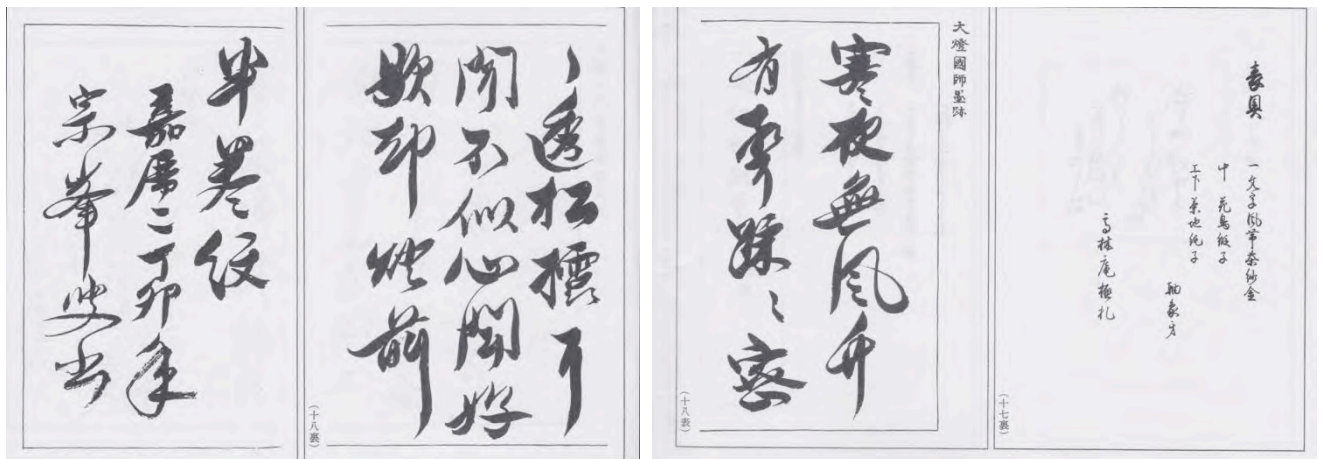 表具
一文字風帯茶紗金
中 花鳥緞子
上下 茶地純子
軸象牙
高林庵極札
(十七裏)
大燈國師墨跡
寒夜無風竹
有聲踈〻密
(十八表)
〻透松櫺耳
聞不似心聞好
歇却燈前
(十八裏)
半巻経
嘉暦二丁卯年
宗峯叟書